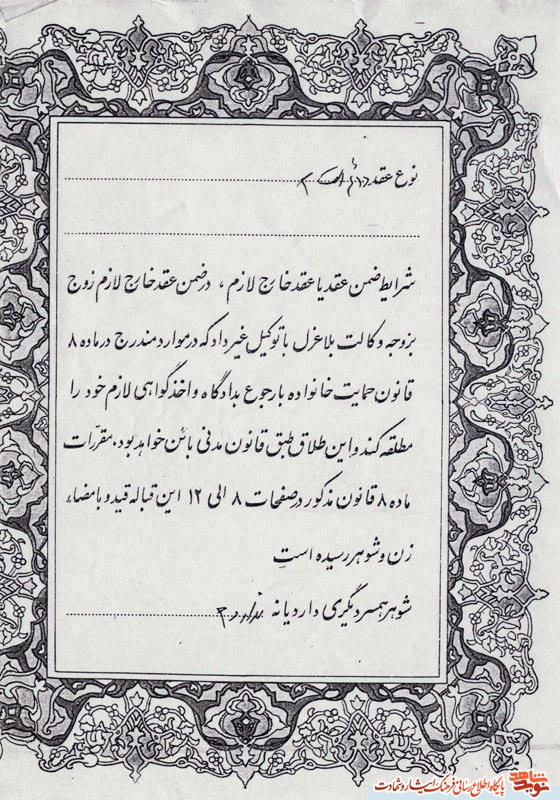 نوع عقد دائم است
شرایط ضمن عقد یا عقد خارج لازم ، در ضمن عقد خارج لازم زوج
بزوجه وکالت بلاعزل با توکیل غیر داد که در موارد مندرج در ماده ۸
قانون حمایت خانواده با رجوع بدادگاه و اخذ گواهی لازم خود را
مطلقه کند و این طلاق طبق قانون مدنی بائن خواهد بود. مقررات
ماده ۸ قانون مذکور در صفحات ۸ الی ۱۲ این قباله قید و بامضاء
زن و شوهر رسیده است
شوهر همسر دیگری دارد یا نه ندارد
پایگاه اطلاع رسانی فرهنگ ایثار و شهادت
نوید شاهد